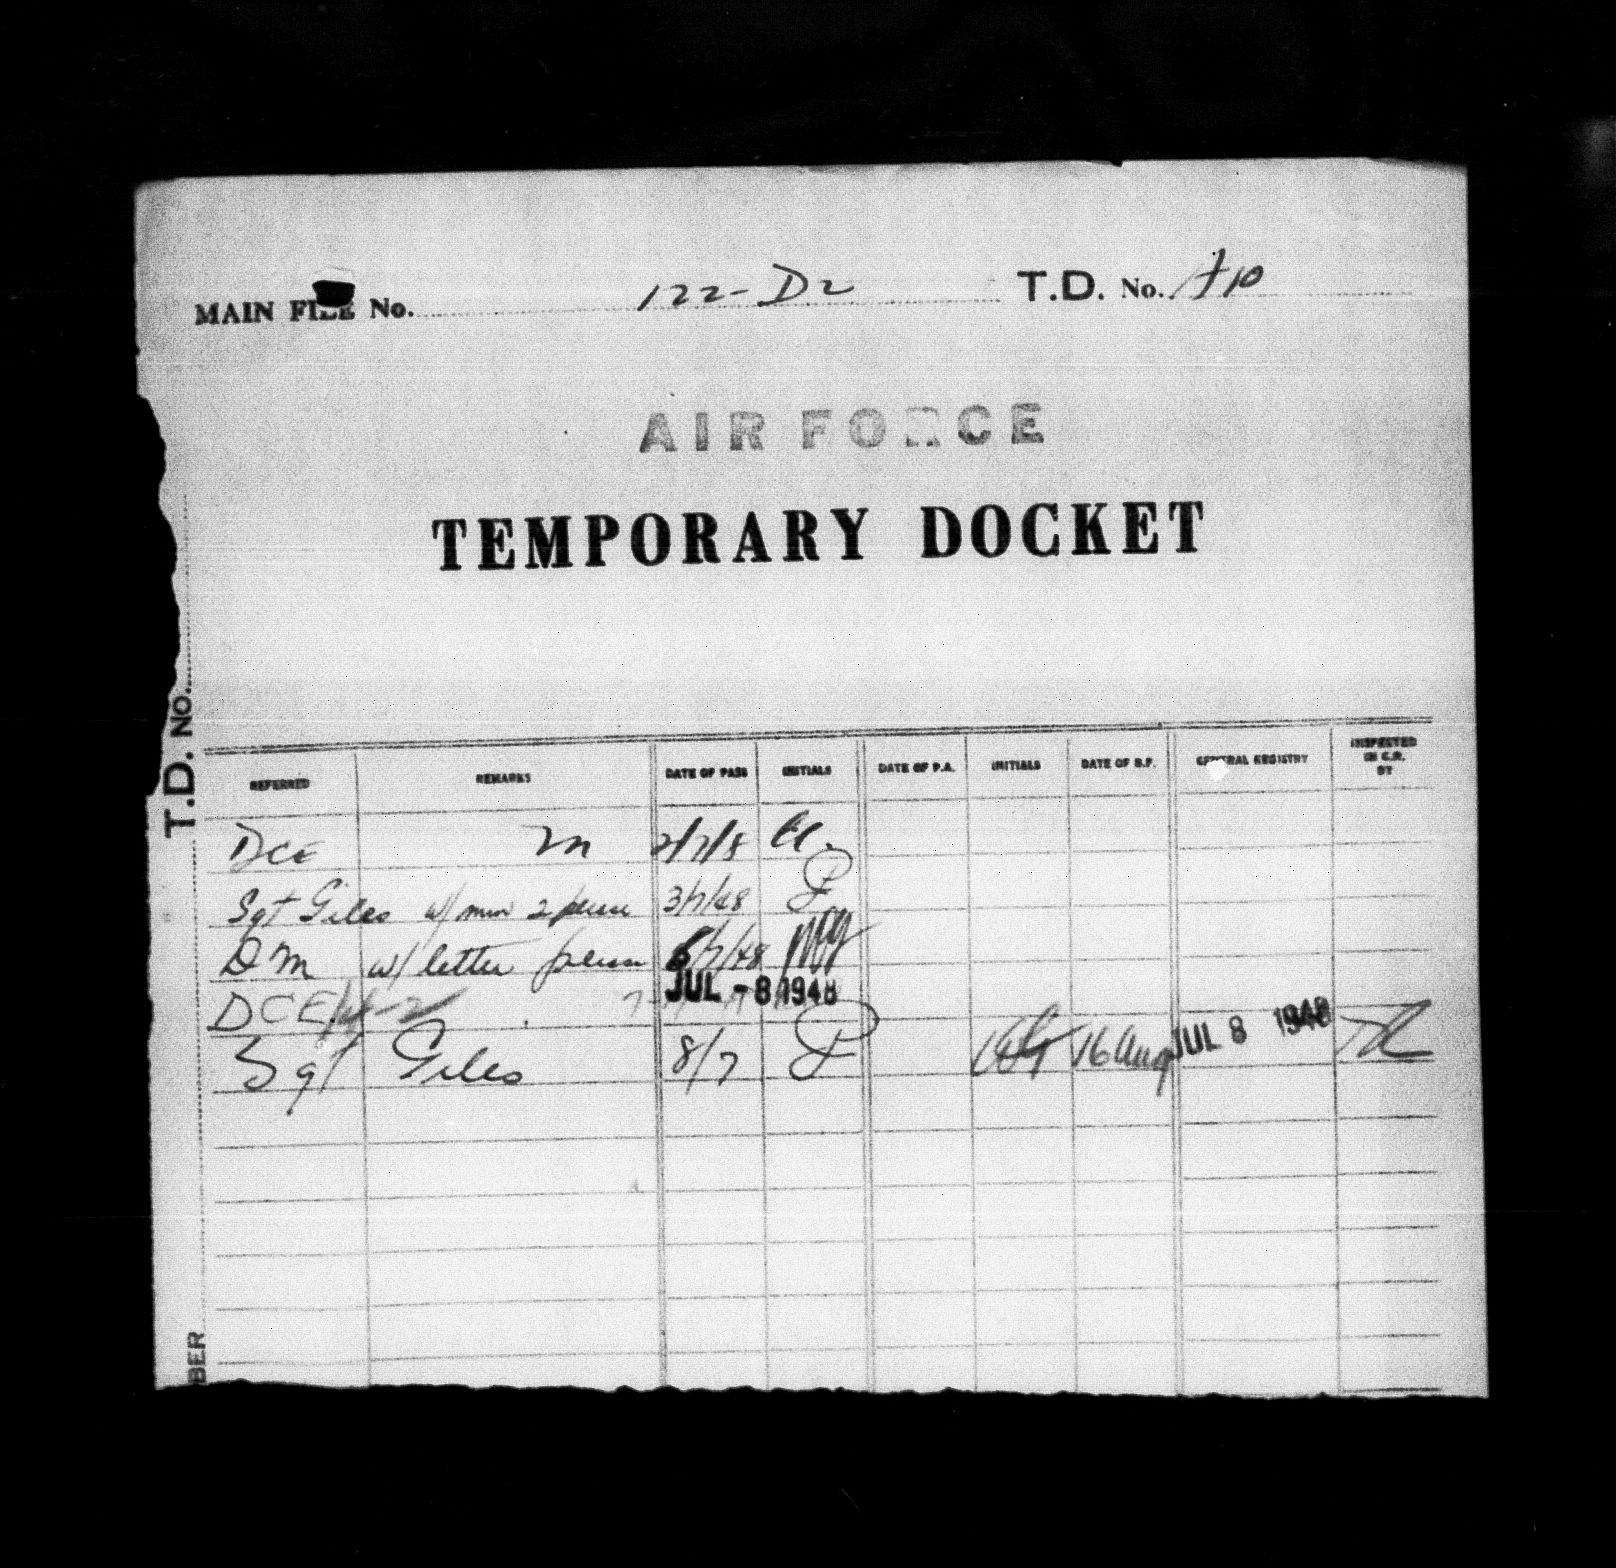 MAIN FILE No. 122-D2 T.D. No.
AIR FORCE
TEMPORARY DOCKET
T.D. NO.
REFERRED REMARKS DATE OF PASS INITIALS DATE OF P.A. INITIALS DATE OF B.F. GENERAL REGISTRY INSPECTED IN C.R. BY
DCE m 2/7/8
Sgt Giles w/ min 2 3/7/48
DM w/ letter 6/7/48
DCE JUL -8 1948
Sgt Giles 8/7 16 Aug JUL 8 1948
BER